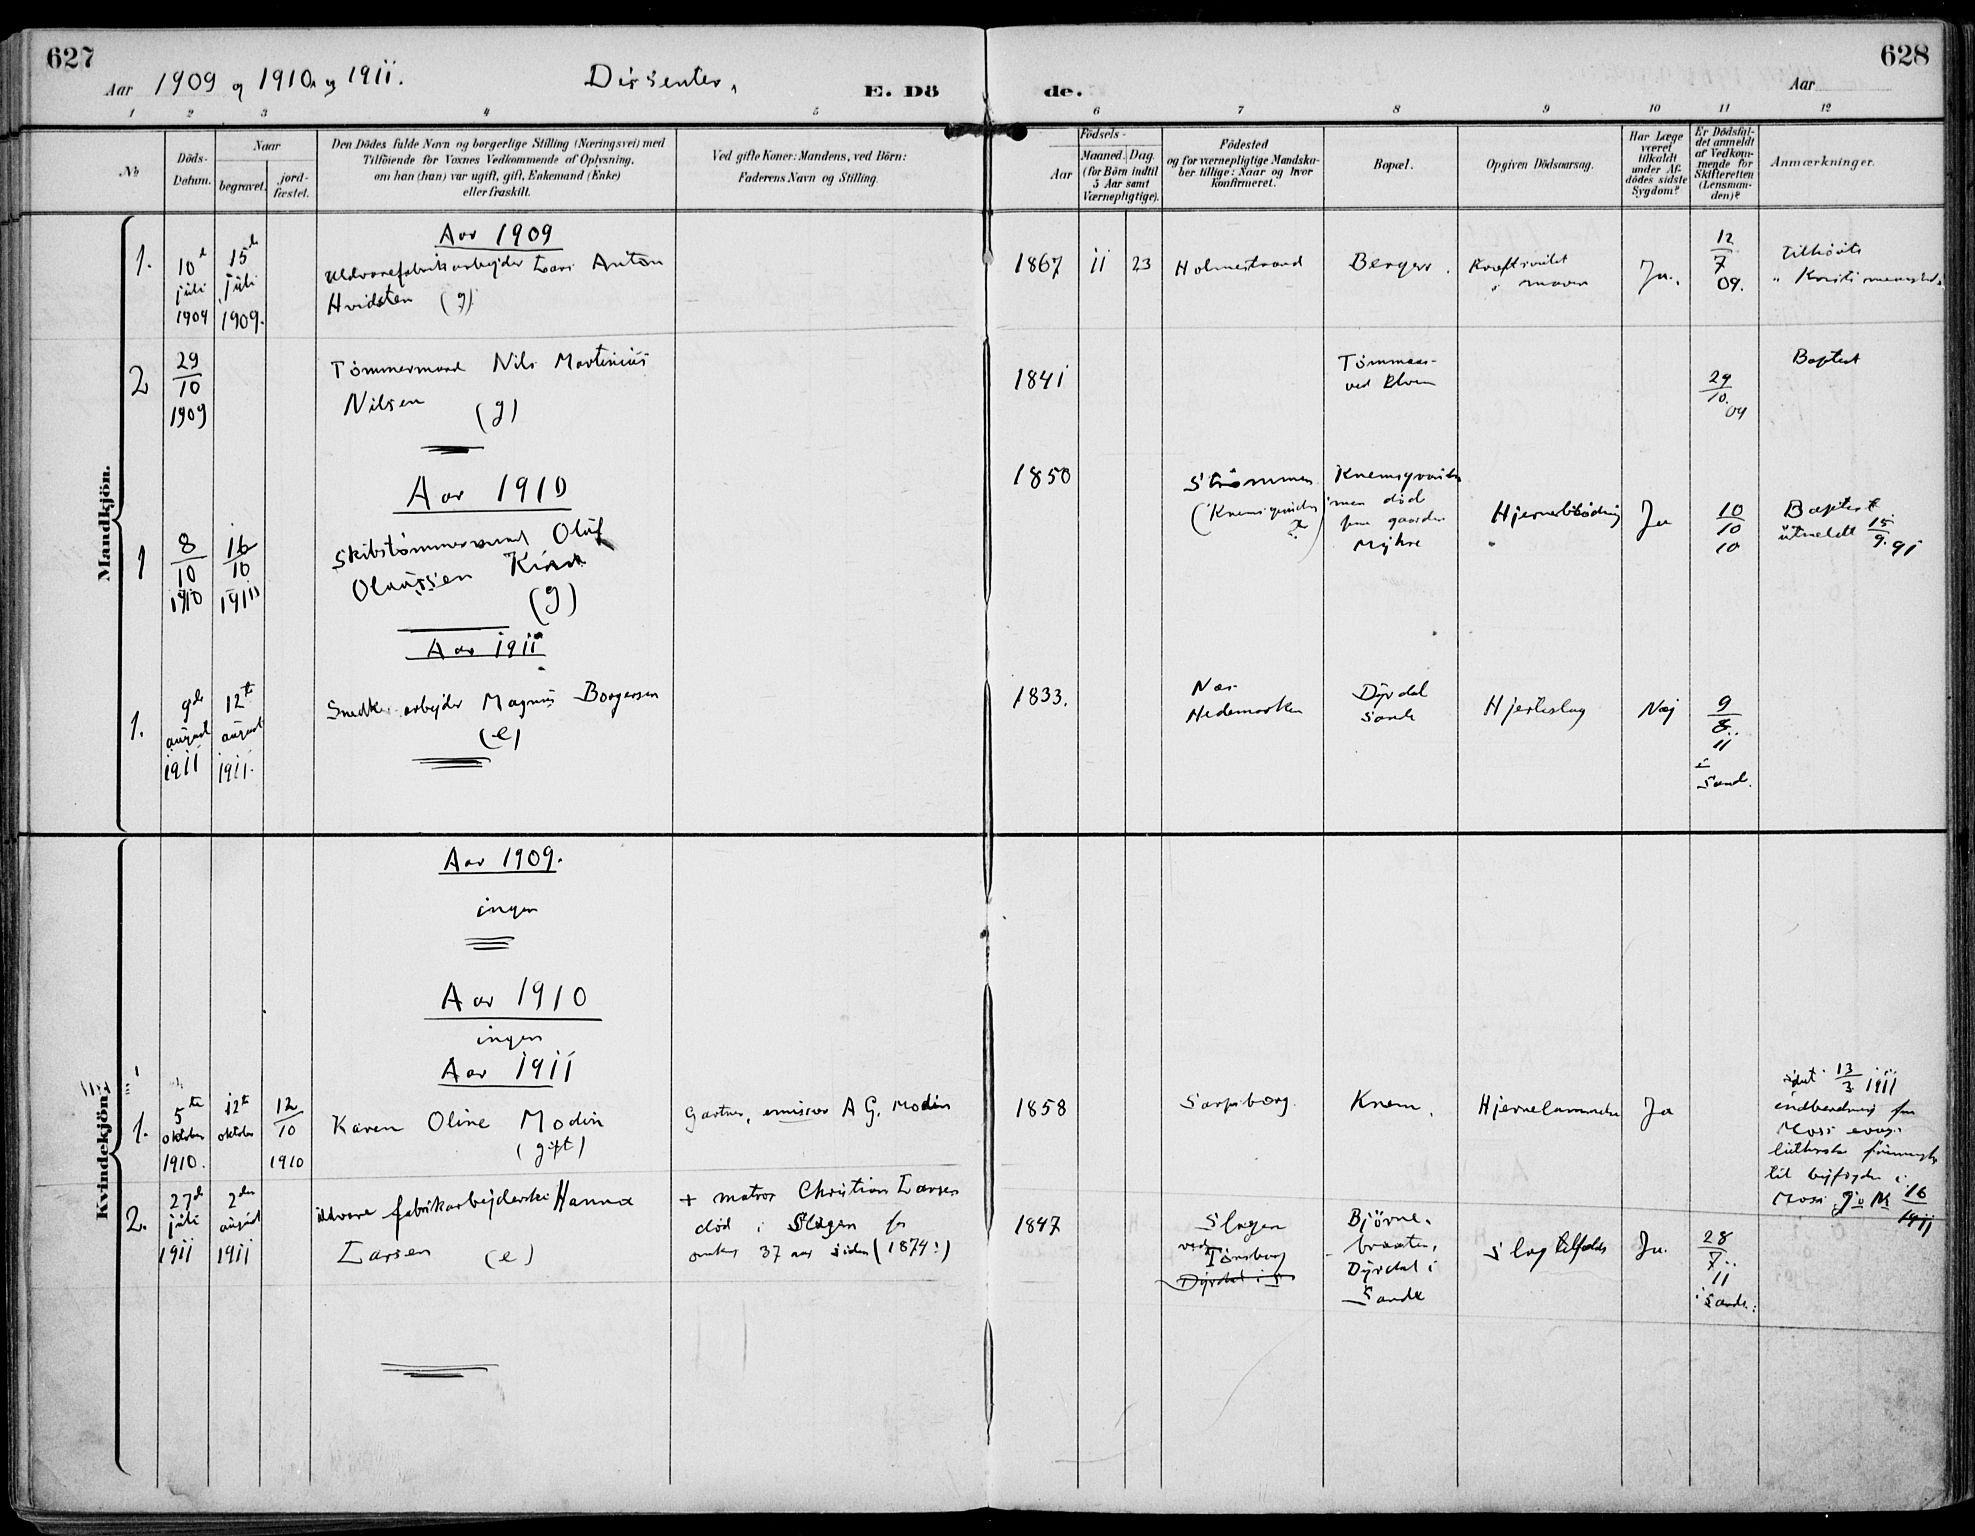 627
628
Aar 1909 og 1910 og 1911.
Dissenter.
E. Döde.
Aar
1 2 3 4 5 6 7 8 9 10 11 12
No
Döds-Datum.
Naar
begravet.
jord-fæstet.
Den Dödes fulde Navn og borgerlige Stilling (Næringsvei) med
Tilföiende for Voxnes Vedkommende af Oplysning,
om han (hun) var ugift, gift, Enkemand (Enke)
eller fraskilt.
Ved gifte Koner: Mandens, ved Börn:
Faderens Navn og Stilling.
Födsels-
Aar
Maaned. Dag
(for Börn indtil
5 Aar samt
Værnepligtige).
Födested
og for værnepligtige Mandska-
ber tillige: Naar og hvor
konfirmeret.
Bopæl.
Opgiven Dödsaarsag.
Har Læge
været
tilkaldt
under Af-
dödes sidste
Sygdom?
Er Dödsfal-
det anmeldt
af Vedkom-
mende for
Skifteretten
(Lensman-
den)?
Anmærkninger.
Mandkjön.
Aar 1909
1.
10de
juli
1909
15de
juli
1909.
Uldvarefabrikarbejder Lars Anton
Hvidsten (g)
1867 11 23
Holmestrand
Berger.
Kræftsvulst
i maven
Ja.
12
7
09.
Tilhørte
2
29
10
1909
Tømmermand Nils Martinius
Nilsen (g)
1841
29
10.
09
Baptist
Aar 1910
1
8
10
1910
16
10
Skibstømmermand Oluf
Olaussen
(g)
1850
Strømmen
Hjerneblødning
Ja
10
10
10
Baptist
utmeldt 15
9. 91
Aar 1911
1.
9de
august
1911
12te
august
1911.
Snedkerarbejder Magnus Borgersen
(e)
1833.
Næs
Hedemarken
Dyrdal
Sande
Hjerteslag
Nej
9
8
11
i
Sande.
Kvindekjön.
Aar 1909.
ingen
Aar 1910
ingen
Aar 1911
1.
5te
oktober
1910.
12te
oktober
12
10
1910
Karen Oline Modin
(gift)
Gartner, emissær A G. Modin
1858
Sarpsborg.
Knem.
Ja
13
3 1911
Moss
til byfogden i
Moss
16
1911
2.
27de
juli
1911
2den
august
1911
Uldvare fabrikarbejderske Hanna
Larsen (e)
+ matros Christian Larsen
død i Slagen for
omkr 37 aar siden (1874?)
1847
Slagen
ved
Tønsberg
Dyrdal i S
Bjørne-
braaten,
Dyrdal i
Sande
Slagtilfælde
Ja.
28
7
11
i Sande.